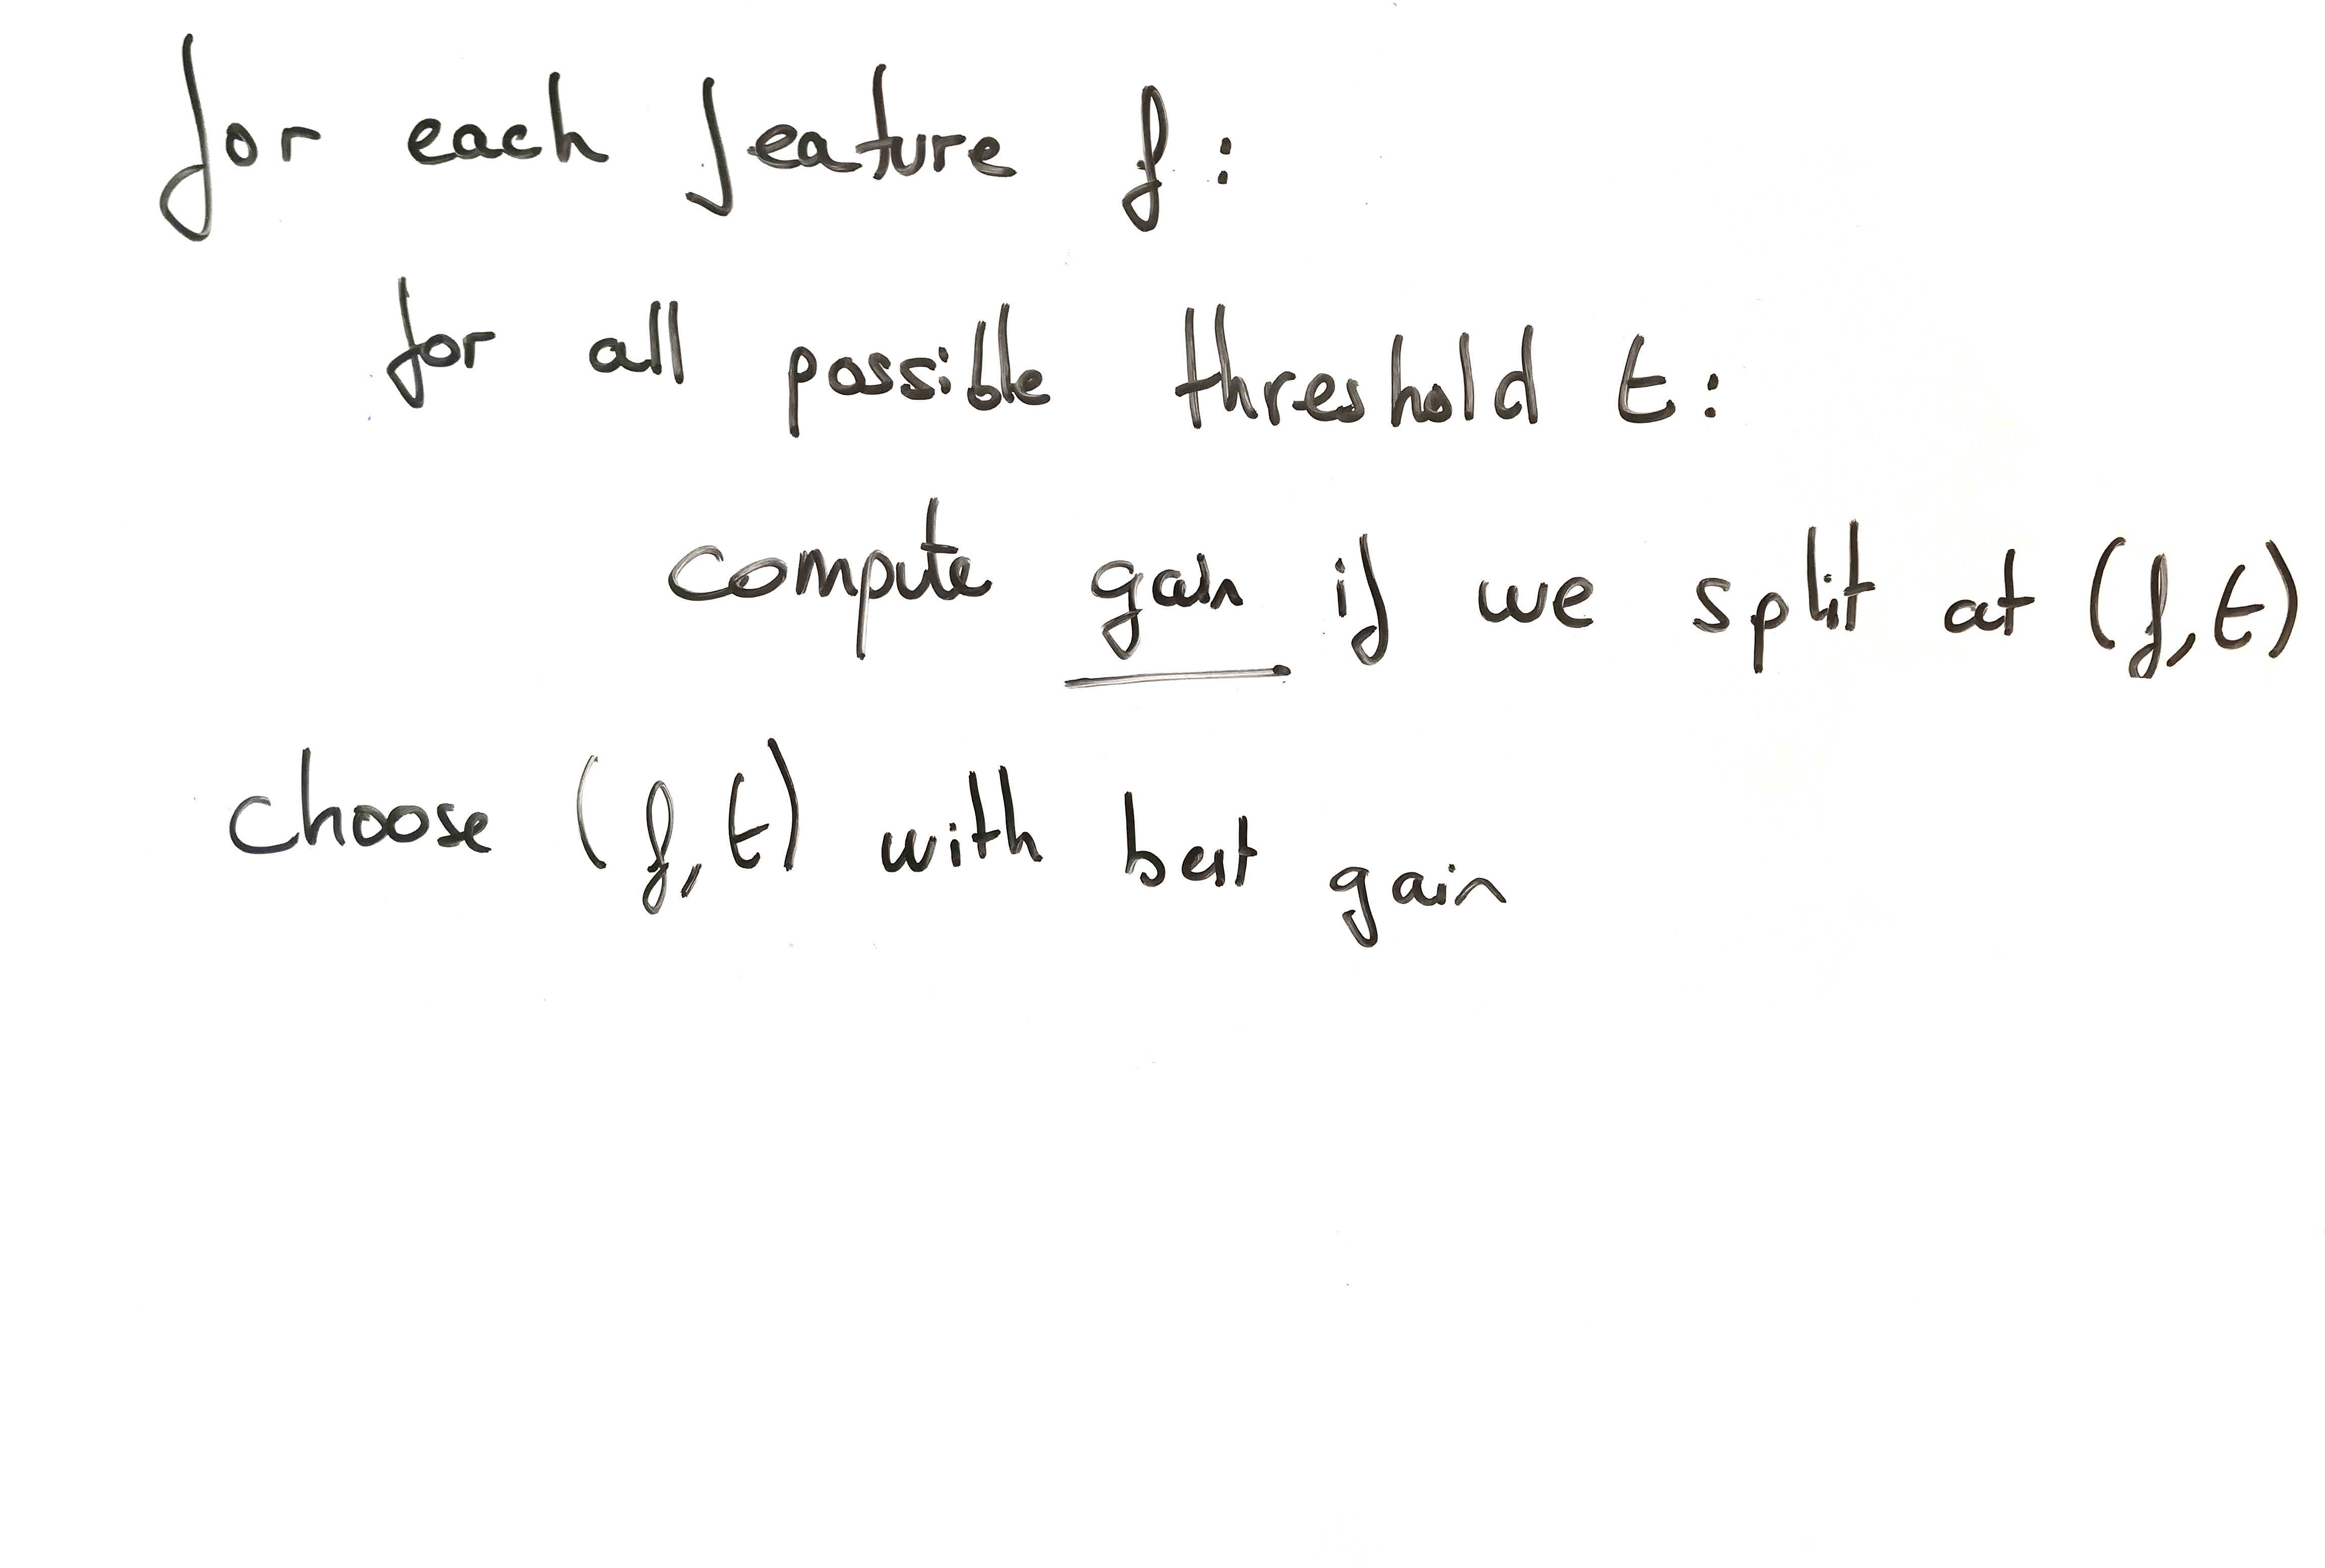 for each feature f:
for all possible threshold t:
compute gain if we split at (f, t)
choose (f, t) with best gain